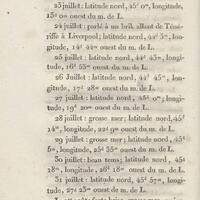 23 juillet : latitude nord, 45d 0m, longitude,
13d 00m ouest du m. de L.
24 juillet : parlé à un brik allant de Téné-
riffe à Liverpool; latitude nord, 44d 5m, lon-
gitude, 14d 44m ouest du m. de L.
25 juillet : latitude nord, 44d 43m, longi-
tude, 16d 55m ouest du m. de L.
26 Juillet : latitude nord, 44d 45m, lon-
gitude, 17d 28m ouest du m. de L.
27 juillet : latitude nord, 45d 0m; longi-
tude, 19d 20m ouest du m. de L.
28 juillet : grosse mer; latitude nord, 45d
14m, longitude, 22d 9m ouest du m. de L.
29 juillet : grosse mer; latitude nord, 45d
5m, longitude, 25d 35m ouest du m. de L.
30 juillet : beau tems; latitude nord, 45d
18m, longitude, 26d 18m ouest du m. de L.
31 juillet : latitude nord, 45d 57m, longi-
tude, 27d 23m ouest du m. de L.